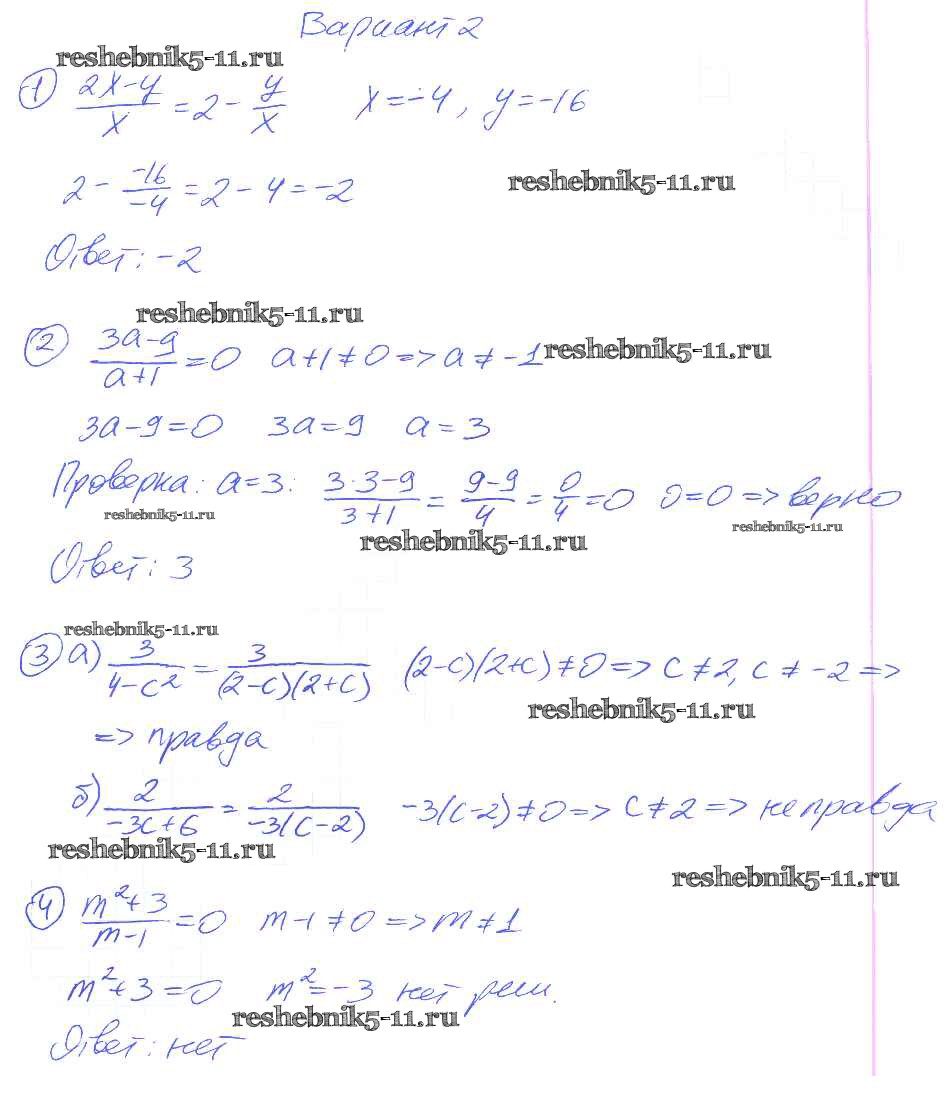 Вариант 2
reshebnik5-11.ru
① (2x-y)/x = 2 - y/x x = -4, y = -16
2 - (-16)/(-4) = 2 - 4 = -2
reshebnik5-11.ru
Ответ: -2
reshebnik5-11.ru
② (3a-9)/(a+1) = 0 a+1 ≠ 0 => a ≠ -1
reshebnik5-11.ru
3a-9=0 3a=9 a=3
Проверка: a=3: (3·3-9)/(3+1) = (9-9)/4 = 0/4 = 0 0=0 => верно
reshebnik5-11.ru
reshebnik5-11.ru
reshebnik5-11.ru
Ответ: 3
reshebnik5-11.ru
③ а) 3/(4-c²) = 3/((2-c)(2+c)) (2-c)(2+c) ≠ 0 => c ≠ 2, c ≠ -2 =>
reshebnik5-11.ru
=> правда
б) 2/(-3c+6) = 2/(-3(c-2)) -3(c-2) ≠ 0 => c ≠ 2 => неправда
reshebnik5-11.ru
reshebnik5-11.ru
④ (m²+3)/(m-1) = 0 m-1 ≠ 0 => m ≠ 1
m²+3=0 m²=-3 нет реш.
reshebnik5-11.ru
Ответ: нет